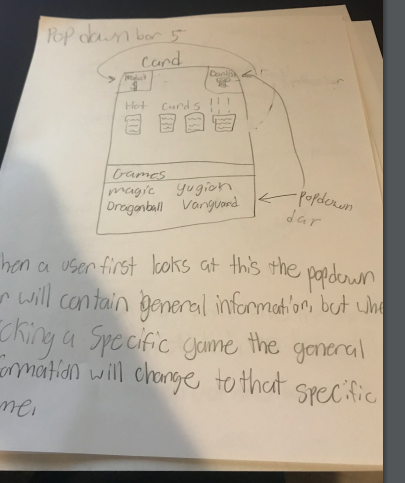 Popdown bar 5
Card
Hot Cards !!!
Games
magic yugioh
Dragonball Vanguard
popdown
dar
hen a user first looks at this the popdown
r will contain general information, but whe
cking a specific game the general
ormation will change to that specific
me,